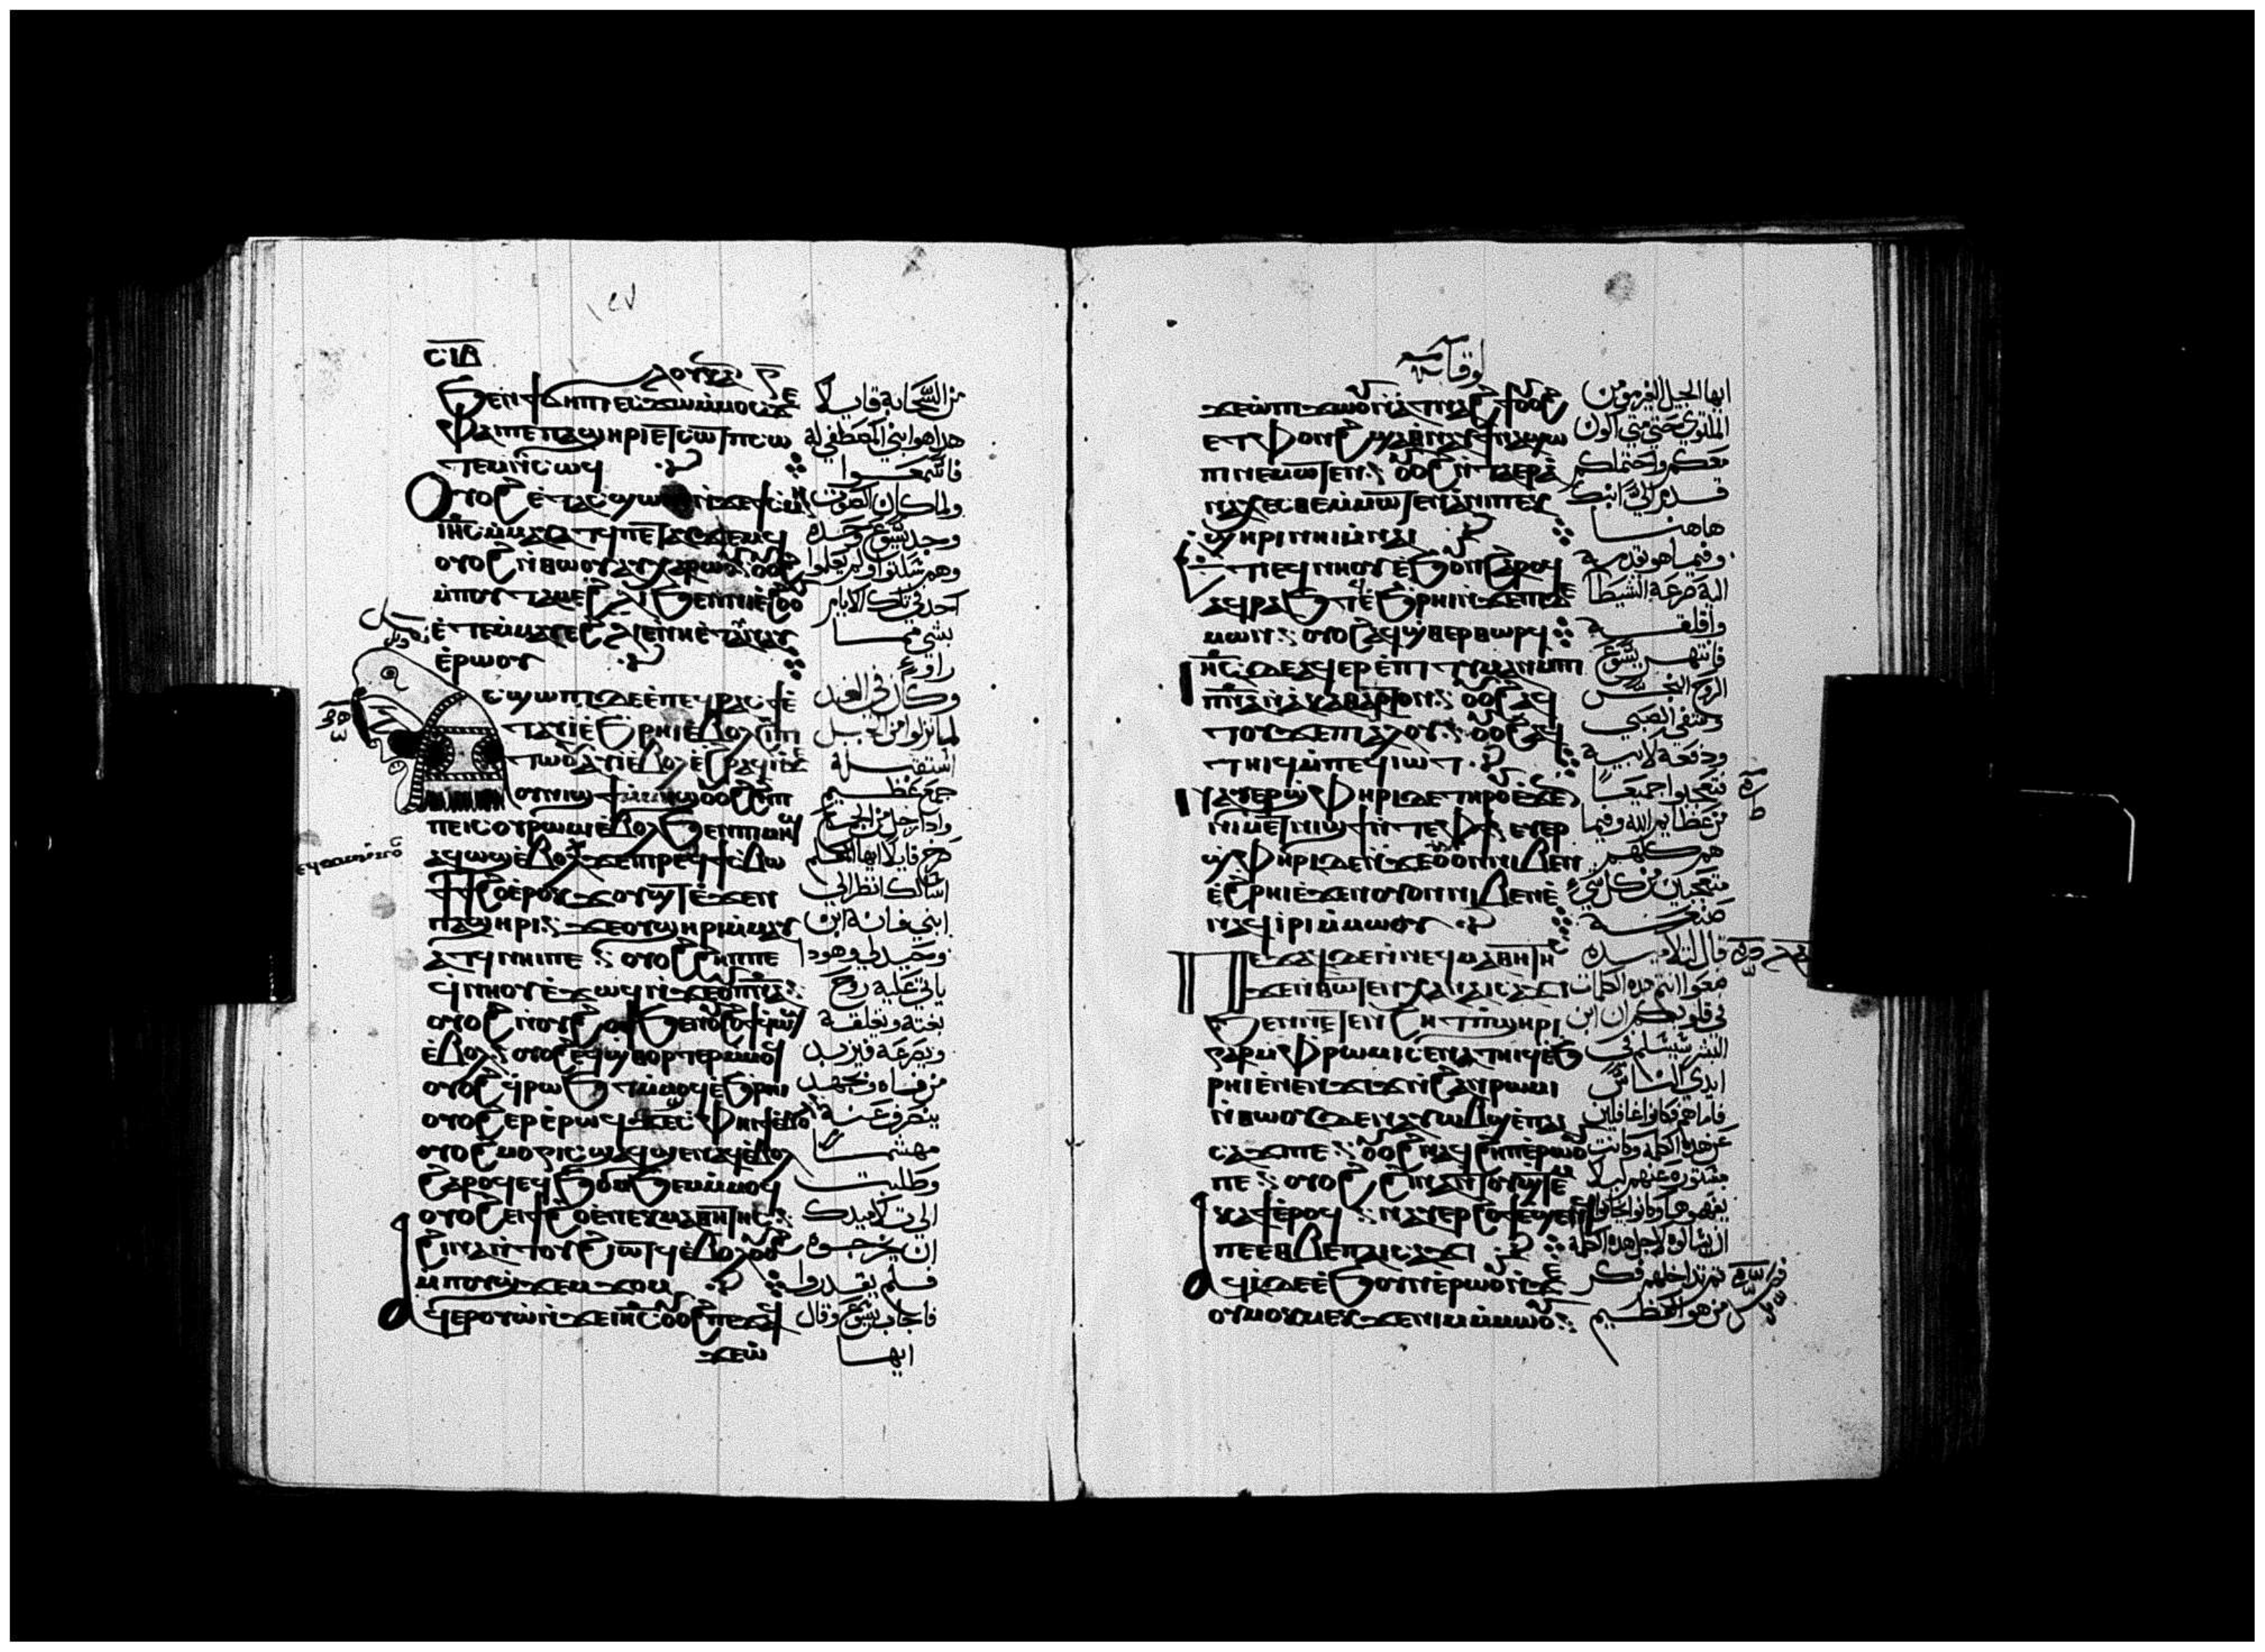 ١٢٧
ⲥⲓⲇ
ⲗⲟⲩⲕⲁ
ϧⲉⲛϯϭⲏⲡⲓ ⲉⲥϫⲱⲙⲙⲟⲥ ϫⲉ
ⲫⲁⲓⲡⲉⲡⲁϣⲏⲣⲓ ⲉⲧⲥⲱⲧⲡ ⲥⲱ
ⲧⲉⲙⲛ̀ⲥⲱϥ
ⲟⲩⲟϩ ⲉ̀ⲧⲁⲥϣⲱⲡⲓ ⲛ̀ϫⲉϯⲥⲙⲏ
ⲟⲩⲟϩ ⲛ̀ⲑⲱⲟⲩ ⲁⲩⲭⲁⲣⲱⲟⲩ ⲟⲩⲟϩ
ⲙ̀ⲡⲟⲩⲧⲁⲙⲉϩⲗⲓ ϧⲉⲛⲛⲓⲉ̀ϩⲟⲟⲩ
ⲉ̀ⲧⲉⲙⲙⲁⲩ ⲉϩⲗⲓ ⲉⲛⲛⲏⲉ̀ⲧⲁⲩⲛⲁⲩ
ⲉ̀ⲣⲱⲟⲩ
ⲥϣⲱⲡⲓ ⲇⲉ ⲉ̀ⲡⲉϥⲣⲁⲥϯ ⲉ̀
ⲧⲁⲩⲓ̀ ⲉ̀ϧⲣⲏⲓ ⲉ̀ⲃⲟⲗϩⲓⲡⲓ
ⲧⲱⲟⲩ ⲁϥⲓ̀ ⲉ̀ⲃⲟⲗ ⲉ̀ϩⲣⲁϥ ⲛ̀ϫⲉ
ⲟⲩⲛⲓϣϯ ⲙ̀ⲙⲏϣ ⲟⲩⲟϩ ϩⲏⲡ
ⲡⲉⲓⲥ ⲟⲩⲣⲱⲙⲓ ⲉ̀ⲃⲟⲗ ϧⲉⲛⲡⲓⲙⲏϣ
ⲁϥⲱϣ ⲉ̀ⲃⲟⲗ ϫⲉⲡⲣⲉϥϯⲥⲃⲱ
ϯϯϩⲟ ⲉ̀ⲣⲟⲕ ϫⲟⲩϣⲧ ⲉ̀ϫⲉⲛ
ⲡⲁϣⲏⲣⲓ ϫⲉⲟⲩϣⲏⲣⲓ ⲙ̀ⲙⲁⲩ
ⲁⲧϥ ⲛⲏⲓⲡⲉ ⲟⲩⲟϩ ϩⲏⲡⲡⲉ
ϥⲛⲏⲟⲩ ⲉ̀ϫⲱϥ ⲛ̀ϫⲉⲟⲩⲡⲛⲁ
ⲉ̀ⲃⲟⲗ ⲟⲩⲟϩ ⲉϥϣⲑⲟⲣⲧⲉⲣⲙ̀ⲙⲟϥ
ⲟⲩⲟϩ ϥⲣⲱϧⲧ ⲙ̀ⲙⲟϥ ⲉ̀ϧⲣⲏⲓ
ⲟⲩⲟϩ ⲙⲟⲅⲓⲥ ⲁϥϣⲉⲛⲁϥ ⲉ̀ⲃⲟⲗ
ϩⲁⲣⲟϥ ⲉϥϧⲟⲙϧⲉⲙ ⲙ̀ⲙⲟϥ
ⲟⲩⲟϩ ⲉⲓϯϩⲟ ⲉ̀ⲛⲉⲕⲙⲁⲑⲏⲧⲏⲥ
ϩⲓⲛⲁ ⲛ̀ⲧⲟⲩϩⲓⲧϥ ⲉ̀ⲃⲟⲗ ⲟⲩⲟϩ
ⲙ̀ⲡⲟⲩϣϫⲉⲙϫⲟⲙ
ϥⲉⲣⲟⲩⲱ̀ ⲛ̀ϫⲉⲓⲏⲥ ⲟⲩⲟϩ ⲡⲉϫⲁϥ
ϫⲉⲱ̀
من السحابة قايلا
هذا هو ابني المصطفي له
فاسمعوا
ولما كان الصوت
وجد يسوع وحده
وهم سكتوا ولم يعلموا
احد في تلك الايام
بشي مما
راوه
وكان في الغد
لما نزلوا من الجبل
استقبله
جمع عظيم
واذا رجل من الجمع
صرخ قايلا ايها المعلم
اسالك انظر الي
ابني فانه ابن
وحيد لي وهوذا
ياتي عليه روح
بغتة ويقلقه
ويصرعه فيزبد
ينصرف عنه
مهشما
وطلبت
الي تلاميذك
ان يخرجوه
فلم يقدروا
فاجاب يسوع وقال
ايها
لوقا
ϫⲉⲱ̀ ⲡⲓϫⲱⲟⲩ ⲛ̀ⲁⲑⲛⲁϩϯ ⲟⲩⲟϩ
ⲉⲧⲫⲟⲛϩ ϣⲁⲑⲛⲁⲩ ϯⲛⲁϣⲱ
ⲡⲓ ⲛⲉⲙⲱⲧⲉⲛ ⲟⲩⲟϩ ⲛ̀ⲧⲁⲉⲣⲁ
ⲛⲁⲭⲉⲥⲑⲉ ⲙ̀ⲙⲱⲧⲉⲛ ⲁ̀ⲛⲓⲡⲉⲕ
ϣⲏⲣⲓ ⲛⲏⲓ ⲙ̀ⲛⲁⲓ
ⲁϥⲣⲁϧⲧϥ ⲉ̀ϧⲣⲏⲓ ⲛ̀ϫⲉⲡⲓⲇⲉ
ⲙⲱⲛ ⲟⲩⲟϩ ⲁϥϣⲑⲉⲣⲑⲱⲣϥ
ⲓⲏⲥ ⲇⲉ ⲁϥⲉⲣⲉ̀ⲡⲓⲧⲓⲙⲁⲛ ⲙ̀ⲡⲓ
ⲡⲛⲁ ⲛ̀ⲁ̀ⲕⲁⲑⲁⲣⲧⲟⲛ ⲟⲩⲟϩ ⲁϥ
ⲧⲟⲩϫⲉⲡⲓⲁⲗⲟⲩ ⲟⲩⲟϩ ⲁϥ
ⲧⲏⲓϥ ⲙ̀ⲡⲉϥⲓⲱⲧ
ⲛⲁⲩⲉⲣϣⲫⲏⲣⲓ ⲇⲉ ⲧⲏⲣⲟⲩ ⲉ̀ϫⲉⲛ
ⲛⲓⲙⲉⲧⲛⲓϣϯ ⲛ̀ⲧⲉⲫϯ ⲉⲩⲉⲣ
ϣⲫⲏⲣⲓ ⲇⲉ ⲛ̀ϫⲉⲟⲩⲟⲛ ⲛⲓⲃⲉⲛ
ⲉ̀ϩⲣⲏⲓ ⲉ̀ϫⲉⲛ ⲟⲩⲟⲛ ⲛⲓⲃⲉⲛ ⲉ̀
ⲛⲁϥⲓ̀ⲣⲓ ⲙ̀ⲙⲱⲟⲩ
ⲡⲉϫⲁϥ ⲇⲉ ⲛ̀ⲛⲉϥⲙⲁⲑⲏⲧⲏⲥ
ϧⲉⲛⲛⲉⲧⲉⲛϩⲏⲧ ⲡ̀ϣⲏⲣⲓ
ⲅⲁⲣ ⲙ̀ⲫⲣⲱⲙⲓ ⲥⲉⲛⲁⲧⲏⲓϥ ⲉ̀ϧ
ⲣⲏⲓ ⲉ̀ⲛⲉⲛϫⲓϫ ⲛ̀ϩⲁⲛⲣⲱⲙⲓ
ⲛ̀ⲑⲱⲟⲩ ⲇⲉ ⲛⲁⲩⲱⲃϣ ⲉ̀ⲡⲁⲓ
ⲥⲁϫⲓⲡⲉ ⲟⲩⲟϩ ⲛⲁϥϩⲏⲡ ⲉ̀ⲣⲱⲟⲩ
ⲡⲉ ⲟⲩⲟϩ ϩⲓⲛⲁ ⲛ̀ⲧⲟⲩϣⲧⲉⲙ
ⲕⲁϯ ⲉ̀ⲣⲟϥ ⲛⲁⲩⲉⲣϩⲟϯ ⲉ̀ϣⲉⲛϥ
ⲡⲉ ⲉⲑⲃⲉⲡⲁⲓⲥⲁϫⲓ
ϥⲓ̀ ⲇⲉ ⲉ̀ϧⲟⲩⲛ ⲉ̀ⲣⲱⲟⲩ ⲛ̀ϫⲉ
ⲟⲩⲙⲟⲕⲙⲉⲕ ϫⲉⲛⲓⲙ ⲙ̀ⲙⲱⲟⲩ
ايها الجيل الغير مومن
الملتوي حتي متي اكون
معكم واحتملكم
قدم الي ابنك
هاهنا
وفيما هو يقدم
اليه صرعه الشيطا
واقلقه
فانتهر يسوع
الروح النجس
وشفي الصبي
ودفعه لابيه
فتعجبوا جميعا
من عظايم الله وفيما
هم كلهم
متعجبين من كل شي
صنعه
قال لتلاميذه
ضعوا انتم هذه الكلمات
في قلوبكم ان ابن
البشر سيسلم في
ايدي الناس
فاما هم فكانوا غافلين
عن هذه الكلمة وكانت
مستورة عنهم كيلا
يفهموها وكانوا يخافوا
ان يسالوه لاجل هذه الكلمة
ثم تداخلهم فكر
من هو العظيم